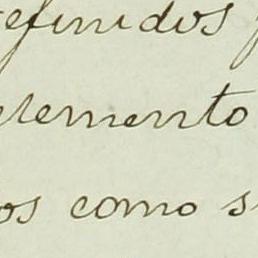 definidos
elemento
os como s